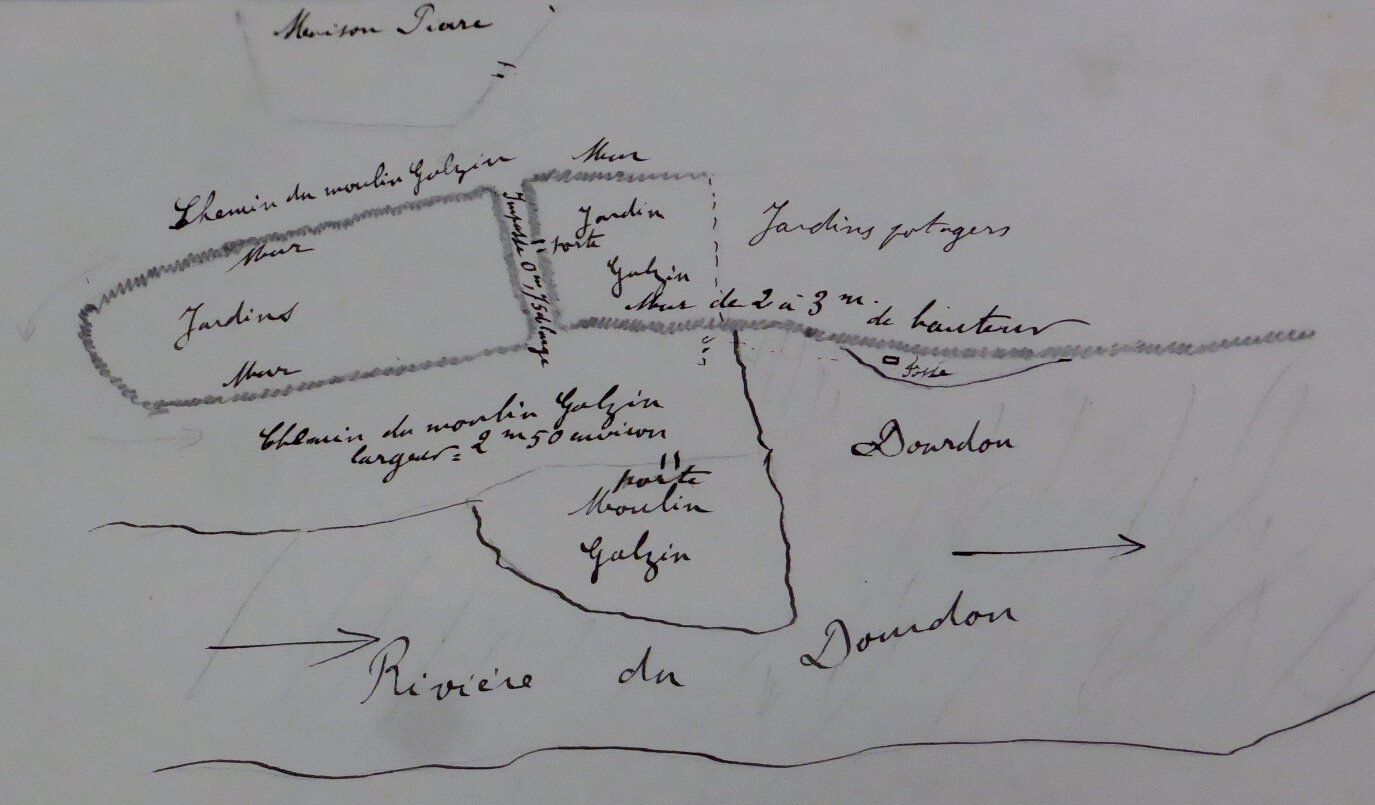 Maison Pierre
Chemin du moulin Galzin
Mur
Mur
Jardins
Mur
Impasse 0m,75 d large
Jardin
porte
Galzin
Jardins potagers
Mur de 2 à 3 m. de hauteur
fosse
Chemin du moulin Galzin
largeur = 2 m 50 environ
Dourdou
porte
Moulin
Galzin
Rivière du Dourdou